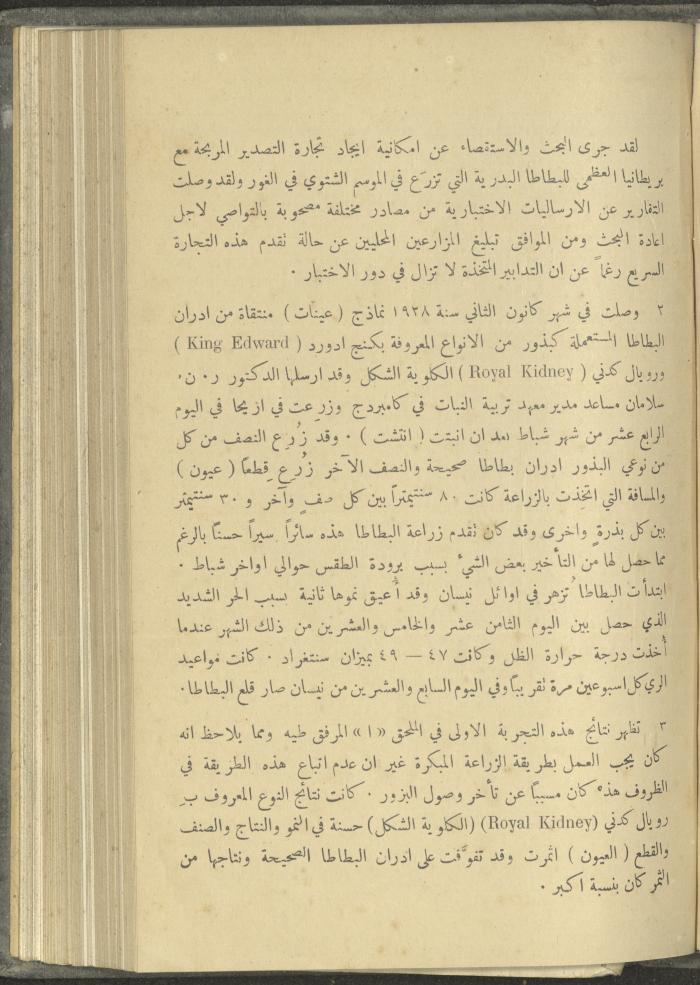 لقد جرى البحث والاستقصاء عن امكانية ايجاد تجارة التصدير المربحة مع
بريطانيا العظمى للبطاطا البدرية التي تزرَع في الموسم الشتوي في الغور ولقد وصلت
التقارير عن الارساليات الاختبارية من مصادر مختلفة مصحوبة بالتواصي لاجل
اعادة البحث ومن الموافق تبليغ المزارعين المحليين عن حالة تقدم هذه التجارة
السريع رغماً عن ان التدابير المتخذة لا تزال في دور الاختبار ٠
٢ وصلت في شهر كانون الثاني سنة ١٩٣٨ نماذج ( عينات ) منتقاة من ادران
البطاطا المستعملة كبذور من الانواع المعروفة بكنج ادورد ( King Edward )
ورويال كدني ( Royal Kidney ) الكلوية الشكل وقد ارسلها الدكتور ر٠ ن٠
سلامان مساعد مدير معهد تربية النبات في كامبردج وزرعت في اريحا في اليوم
الرابع عشر من شهر شباط بعد ان انبتت ( انتشت ) ٠ وقد زُرِع النصف من كل
من نوعي البذور ادران بطاطا صحيحة والنصف الآخر زُرِع قِطعاً ( عيون )
والمسافة التي اتخِذت بالزراعة كانت ٨٠ سنتيمتراً بين كل صفٍ وآخر و ٣٠ سنتيمتر
بين كل بذرةٍ واخرى وقد كان تقدم زراعة البطاطا هذه سائراً سيراً حسنًا بالرغم
مما حصل لها من التأخير بعض الشيء بسبب برودة الطقس حوالي اواخر شباط ٠
ابتدأت البطاطا تُزهر في اوائل نيسان وقد أُعيق نموها ثانية بسبب الحر الشديد
الذي حصل بين اليوم الثامن عشر والخامس والعشرين من ذلك الشهر عندما
أُخذت درجة حرارة الظل وكانت ٤٧ — ٤٩ بميزان سنتغراد ٠ كانت مواعيد
الري كل اسبوعين مرة تقريباً وفي اليوم السابع والعشرين من نيسان صار قلع البطاطا٠
٣ تظهر نتائج هذه التجربة الاولى في الملحق «ا» المرفق طيه ومما يلاحظ انه
كان يجب العمل بطريقة الزراعة المبكرة غير ان عدم اتباع هذه الطريقة في
الظروف هذه كان مسبباً عن تأخر وصول البزور ٠ كانت نتائج النوع المعروف بـ
رويال كدني (Royal Kidney) (الكلوية الشكل) حسنة في النمو والنتاج والصنف
والقطع ( العيون ) اثمرت وقد تفوَّقت على ادران البطاطا الصحيحة ونتاجها من
الثمر كان بنسبة اكبر ٠